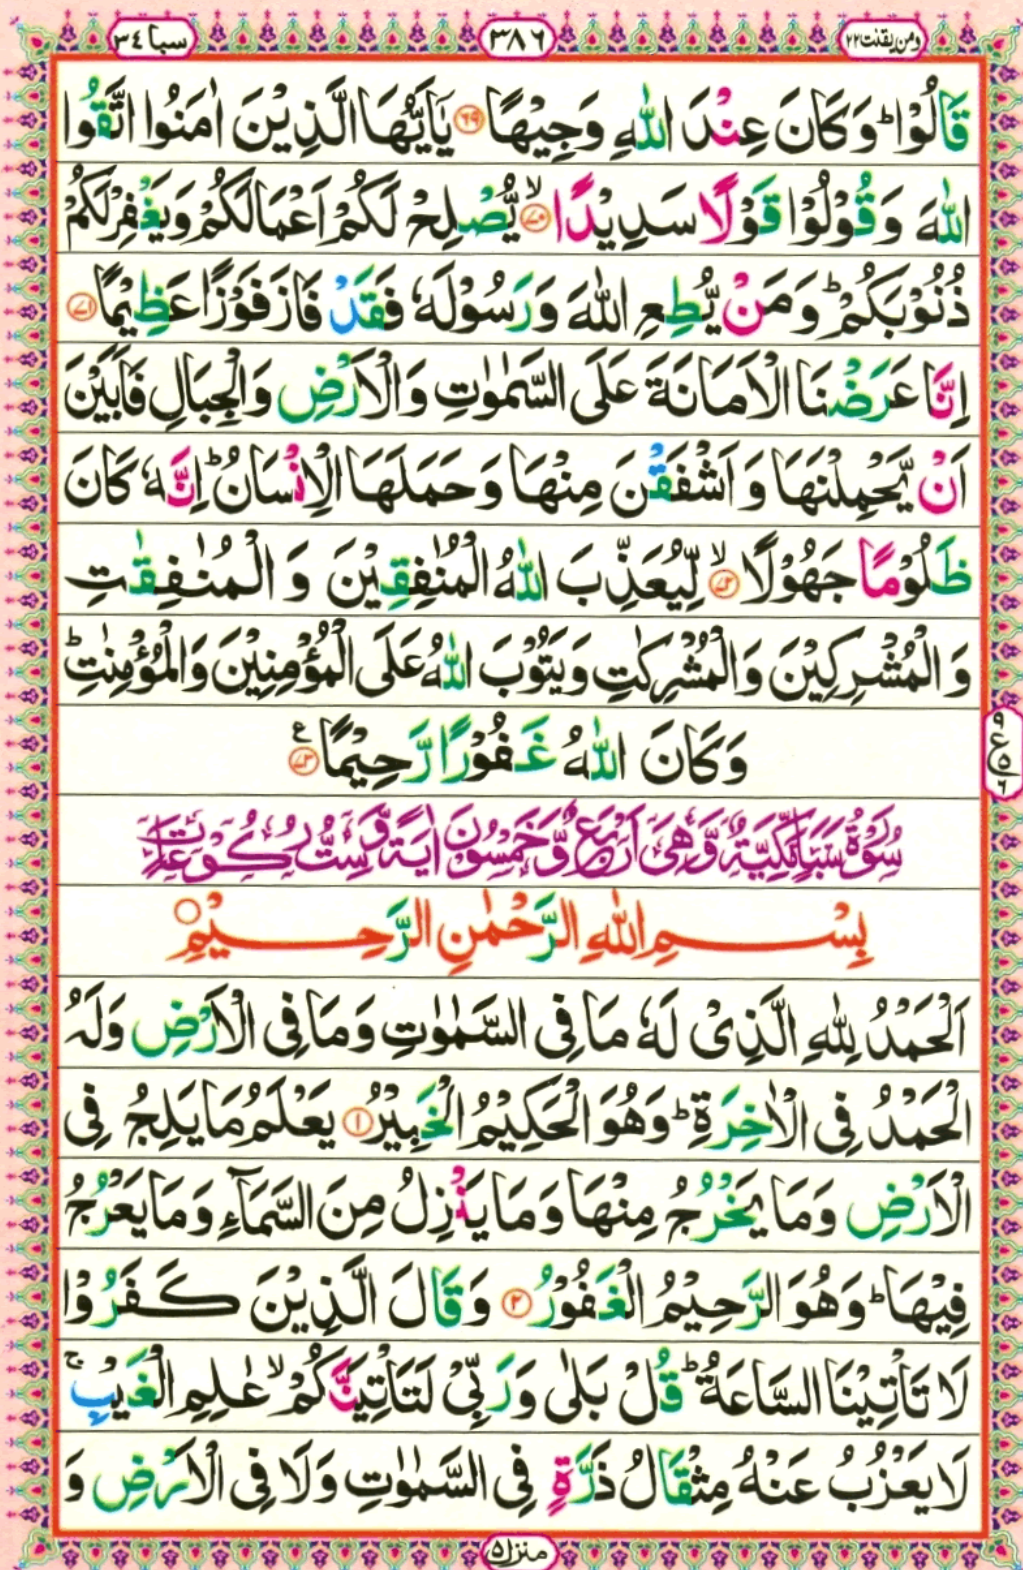 ومن يقنت ٢٢
٣٨٦
سبا ٣٤
قَالُوْا ؕ وَكَانَ عِنْدَ اللّٰهِ وَجِيْهًا ۶۹ يٰۤاَيُّهَا الَّذِيْنَ اٰمَنُوا اتَّقُوا
اللّٰهَ وَقُوْلُوْا قَوْلًا سَدِيْدًا ۙ ۷۰ يُّصْلِحْ لَكُمْ اَعْمَالَكُمْ وَيَغْفِرْلَكُمْ
ذُنُوْبَكُمْ ؕ وَمَنْ يُّطِعِ اللّٰهَ وَرَسُوْلَهٗ فَقَدْ فَازَ فَوْزًا عَظِيْمًا ۷۱
اِنَّا عَرَضْنَا الْاَمَانَةَ عَلَى السَّمٰوٰتِ وَالْاَرْضِ وَالْجِبَالِ فَاَبَيْنَ
اَنْ يَّحْمِلْنَهَا وَاَشْفَقْنَ مِنْهَا وَحَمَلَهَا الْاِنْسَانُ ؕ اِنَّهٗ كَانَ
ظَلُوْمًا جَهُوْلًا ۙ ۷۲ لِّيُعَذِّبَ اللّٰهُ الْمُنٰفِقِيْنَ وَالْمُنٰفِقٰتِ
وَالْمُشْرِكِيْنَ وَالْمُشْرِكٰتِ وَيَتُوْبَ اللّٰهُ عَلَى الْمُؤْمِنِيْنَ وَالْمُؤْمِنٰتِ ؕ
وَكَانَ اللّٰهُ غَفُوْرًا رَّحِيْمًا ۷۳ ع
٩
ع ٥
٦
سُوْرَةُ سَبَاٍ مَّكِّيَّةٌ وَّهِىَ اَرْبَعٌ وَّخَمْسُوْنَ اٰيَةً وَّسِتُّ رُكُوْعَاتٍ
بِسْمِ اللّٰهِ الرَّحْمٰنِ الرَّحِيْمِ ○
اَلْحَمْدُ لِلّٰهِ الَّذِىْ لَهٗ مَا فِى السَّمٰوٰتِ وَمَا فِى الْاَرْضِ وَلَهُ
الْحَمْدُ فِى الْاٰخِرَةِ ؕ وَهُوَ الْحَكِيْمُ الْخَبِيْرُ ۱ يَعْلَمُ مَا يَلِجُ فِى
الْاَرْضِ وَمَا يَخْرُجُ مِنْهَا وَمَا يَنْزِلُ مِنَ السَّمَآءِ وَمَا يَعْرُجُ
فِيْهَا ؕ وَهُوَ الرَّحِيْمُ الْغَفُوْرُ ۲ وَقَالَ الَّذِيْنَ كَفَرُوْا
لَا تَاْتِيْنَا السَّاعَةُ ؕ قُلْ بَلٰى وَرَبِّىْ لَتَاْتِيَنَّكُمْ ۙ عٰلِمِ الْغَيْبِ ۚ
لَا يَعْزُبُ عَنْهُ مِثْقَالُ ذَرَّةٍ فِى السَّمٰوٰتِ وَلَا فِى الْاَرْضِ وَ
منزل ٥